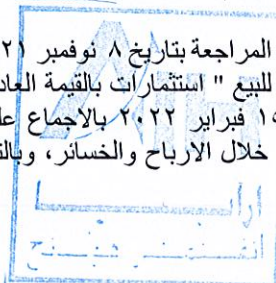 المراجعة بتاريخ ٨ نوفمبر ٢١
للبيع " استثمارات بالقيمة العاد
١ فبراير ٢٠٢٢ بالاجماع عل
خلال الارباح والخسائر ، وبالت